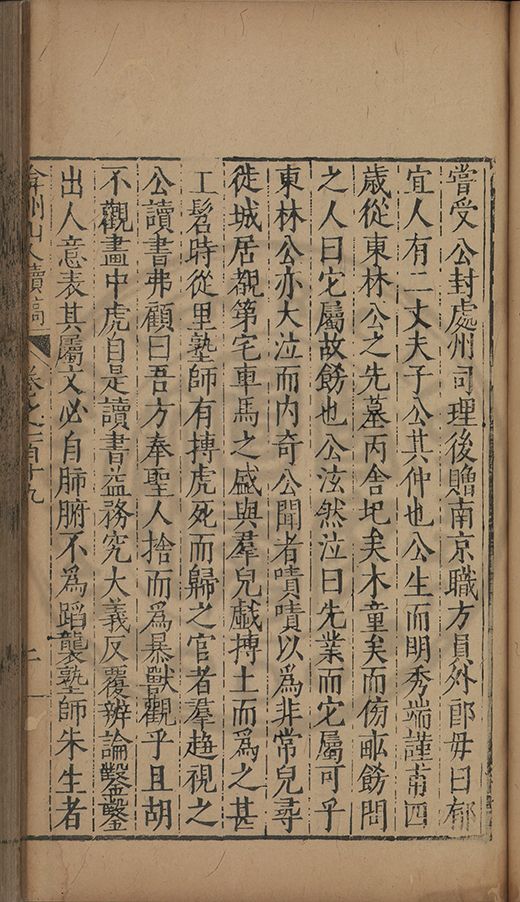 嘗受公封處州司理後贈南京職方員外郎母曰郁
宜人有二丈夫子公其仲也公生而明秀端謹甫四
歲從東林公之先墓丙舍圮矣木童矣而傍畝飭問
之人曰它屬故飭也公泫然泣曰先業而它屬可乎
東林公亦大泣而內奇公聞者嘖嘖以為非常兒尋
徙城居覩第宅車馬之盛與羣兒戲摶土而為之甚
工髫時從里塾師有搏虎死而歸之官者羣趨視之
公讀書弗顧曰吾方奉聖人捨而為暴獸觀乎且胡
不觀畫中虎自是讀書益務究大義反覆辨論鑿鑿
出人意表其屬文必自肺腑不為蹈襲塾師朱生者
弇州山人續稿 卷之一百十九